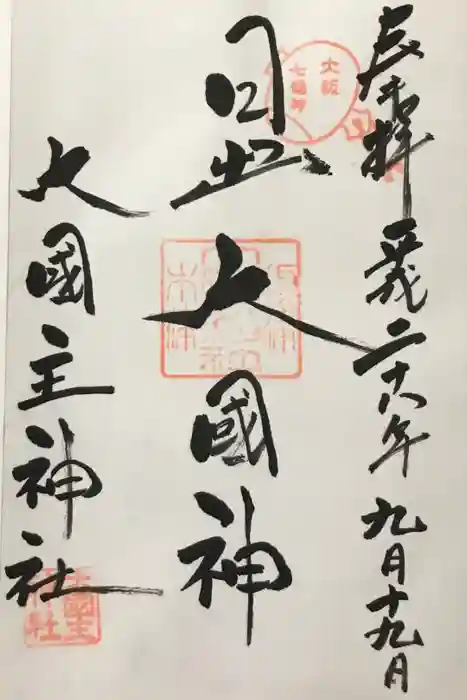 奉拝 平成二十八年 九月十九日
大阪
七福神
日出大國神
大國主神社